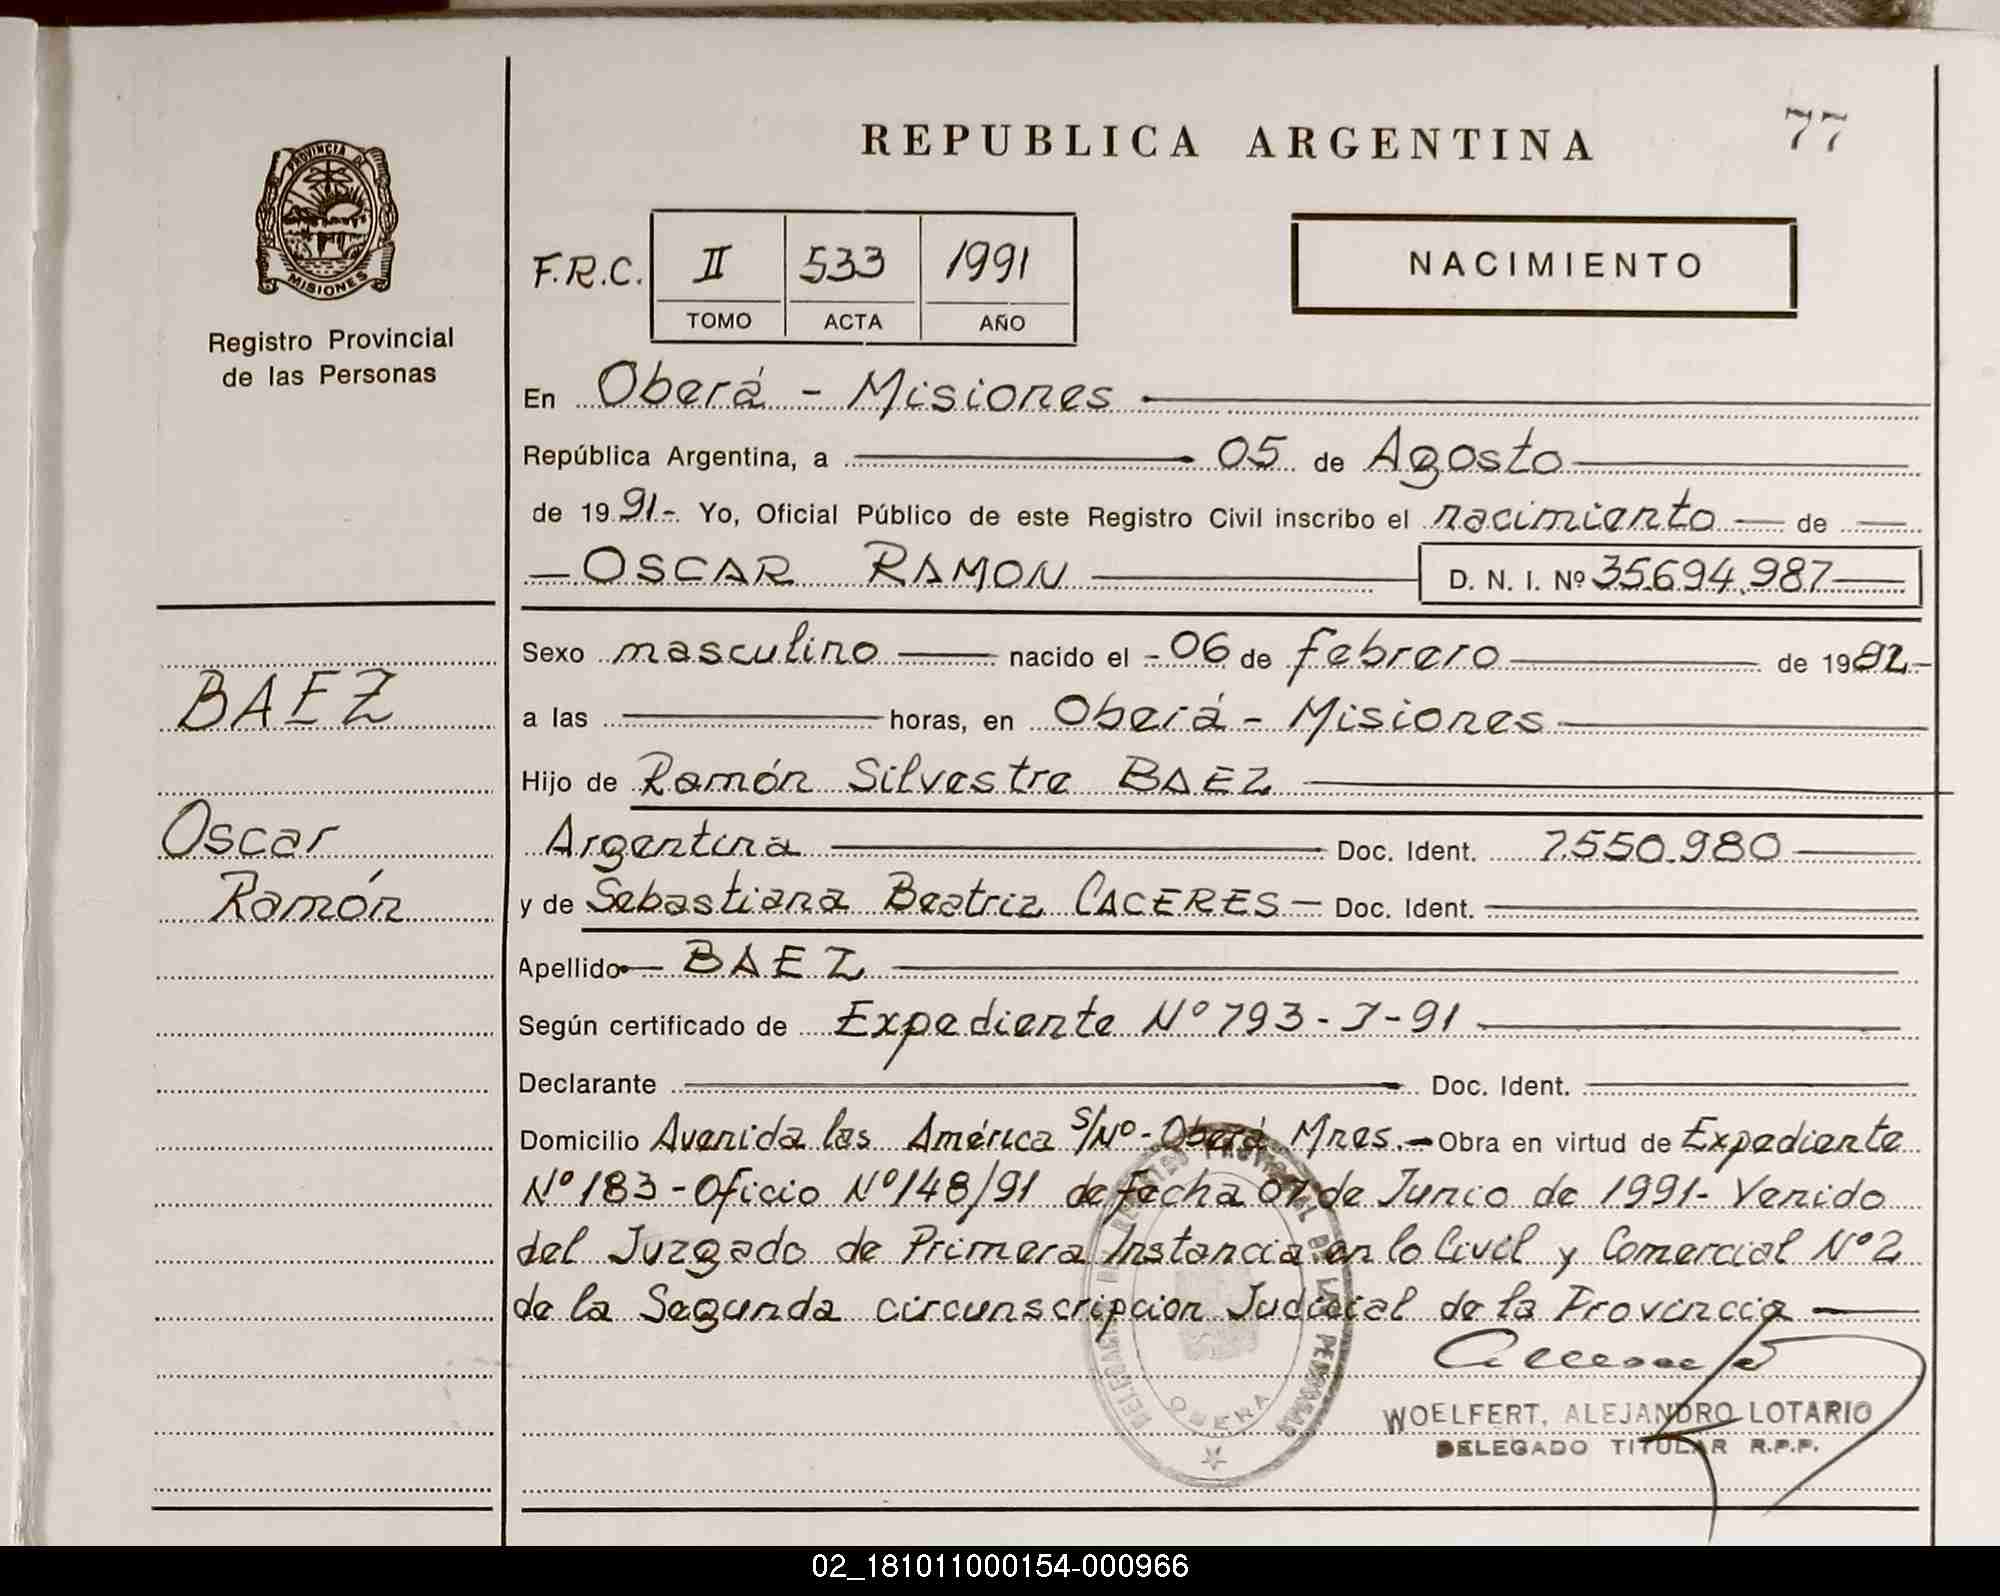 REPUBLICA ARGENTINA
77
PROVINCIA DE
MISIONES
Registro Provincial
de las Personas
F.R.C. II 533 1991
TOMO ACTA AÑO
NACIMIENTO
En Oberá - Misiones
República Argentina, a 05 de Agosto
de 1991.- Yo, Oficial Público de este Registro Civil inscribo el nacimiento de
OSCAR RAMON D. N. I. Nº 35.694.987
Sexo masculino nacido el - 06 de febrero de 1982-
a las horas, en Oberá - Misiones
Hijo de Ramón Silvestre BAEZ
Argentina Doc. Ident. 7.550.980
y de Sebastiana Beatriz CACERES - Doc. Ident.
Apellido BAEZ
Según certificado de Expediente Nº 793-J-91
Declarante Doc. Ident.
Domicilio Avenida las América S/Nº - Oberá Mnes. - Obra en virtud de Expediente
Nº 183 - Oficio Nº 148/91 de fecha 07 de Junio de 1991- Venido
del Juzgado de Primera Instancia en lo Civil y Comercial Nº 2
de la Segunda circunscripcion Judicial de la Provincia
WOELFERT, ALEJANDRO LOTARIO
DELEGADO TITULAR R.P.P.
OBERA
BAEZ
Oscar
Ramón
02_181011000154-000966